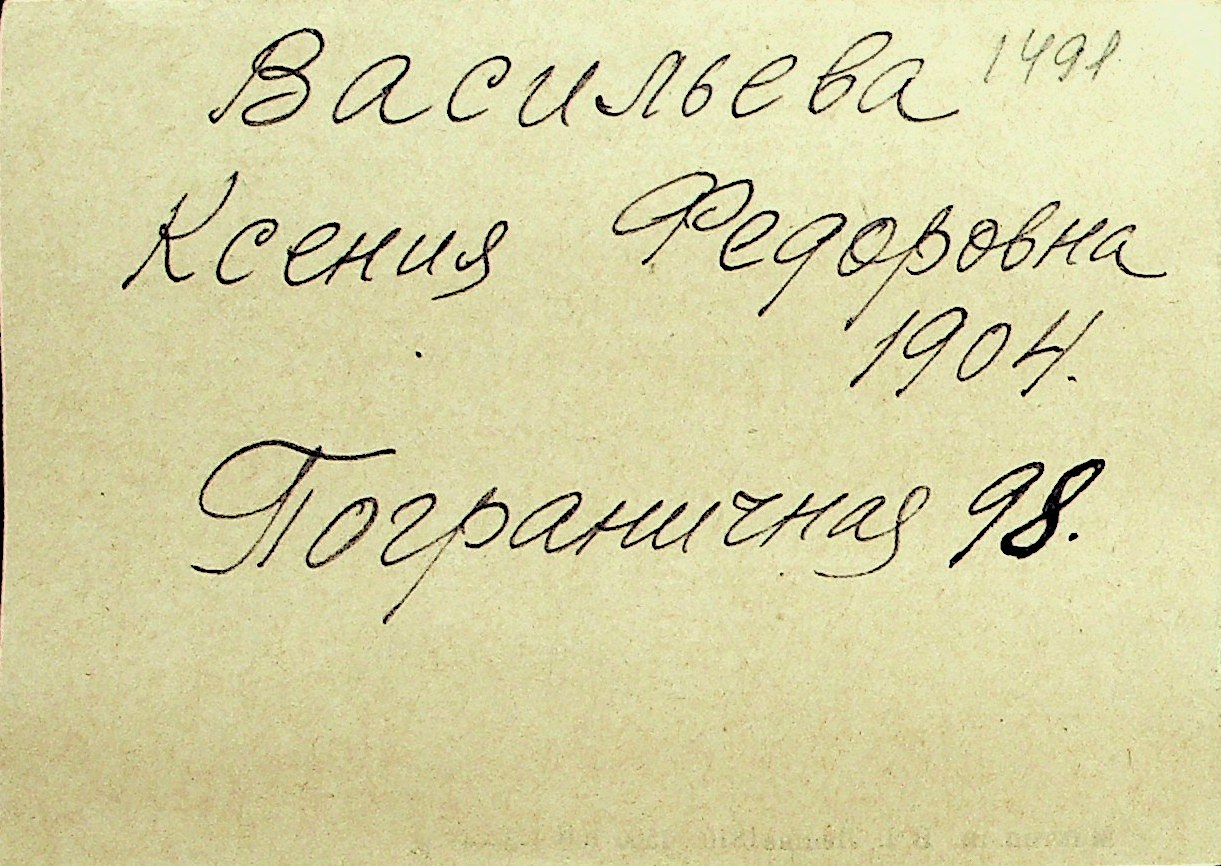 Васильева 1491
Ксения Федоровна
1904.
Пограничная 98.